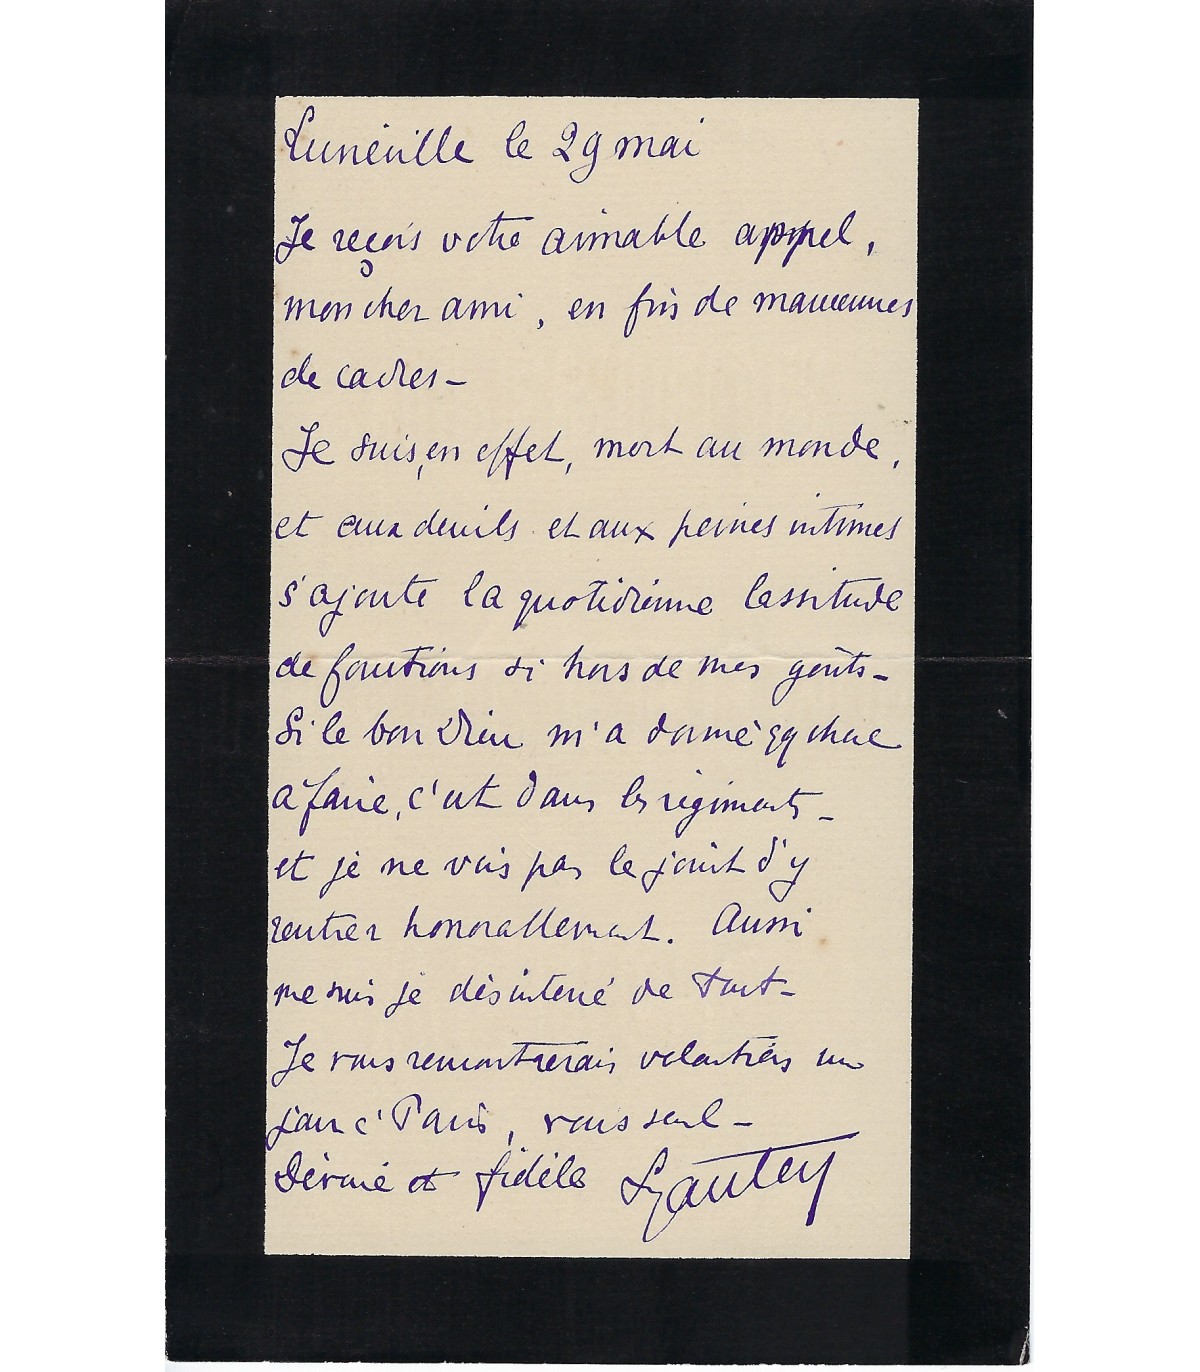 Lunéville le 29 mai
Je reçois votre aimable appel,
mon cher ami, en fin de manœuvres
de cadres –
Je suis, en effet, mort au monde,
et aux deuils et aux peines intimes
s'ajoute la quotidienne lassitude
de fonctions si hors de mes goûts –
Si le bon Dieu m'a donné qq chose
a faire, c'est dans les régiments –
et je ne vois pas le joint d'y
rentrer honorablement. Aussi
me suis je désintéré de tout –
Je vous rencontrerais volontiers un
jour à Paris, vous seul –
Dévoué et fidèle Lyautey